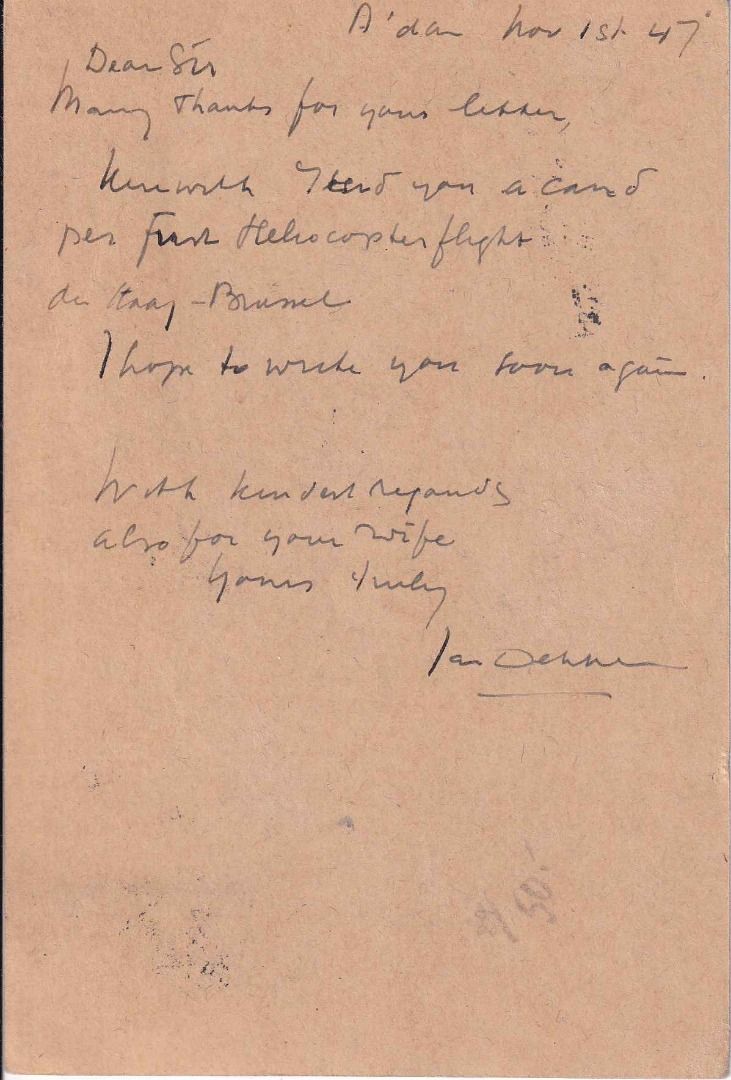 A'dam Nov 1st 47
Dear Sir
Many thanks for your letter,
Herewith I send you a card
per first Helicopterflight
den Haag - Brussel
I hope to write you soon again.
With kindest regards
also for your wife
Yours truly
Jan